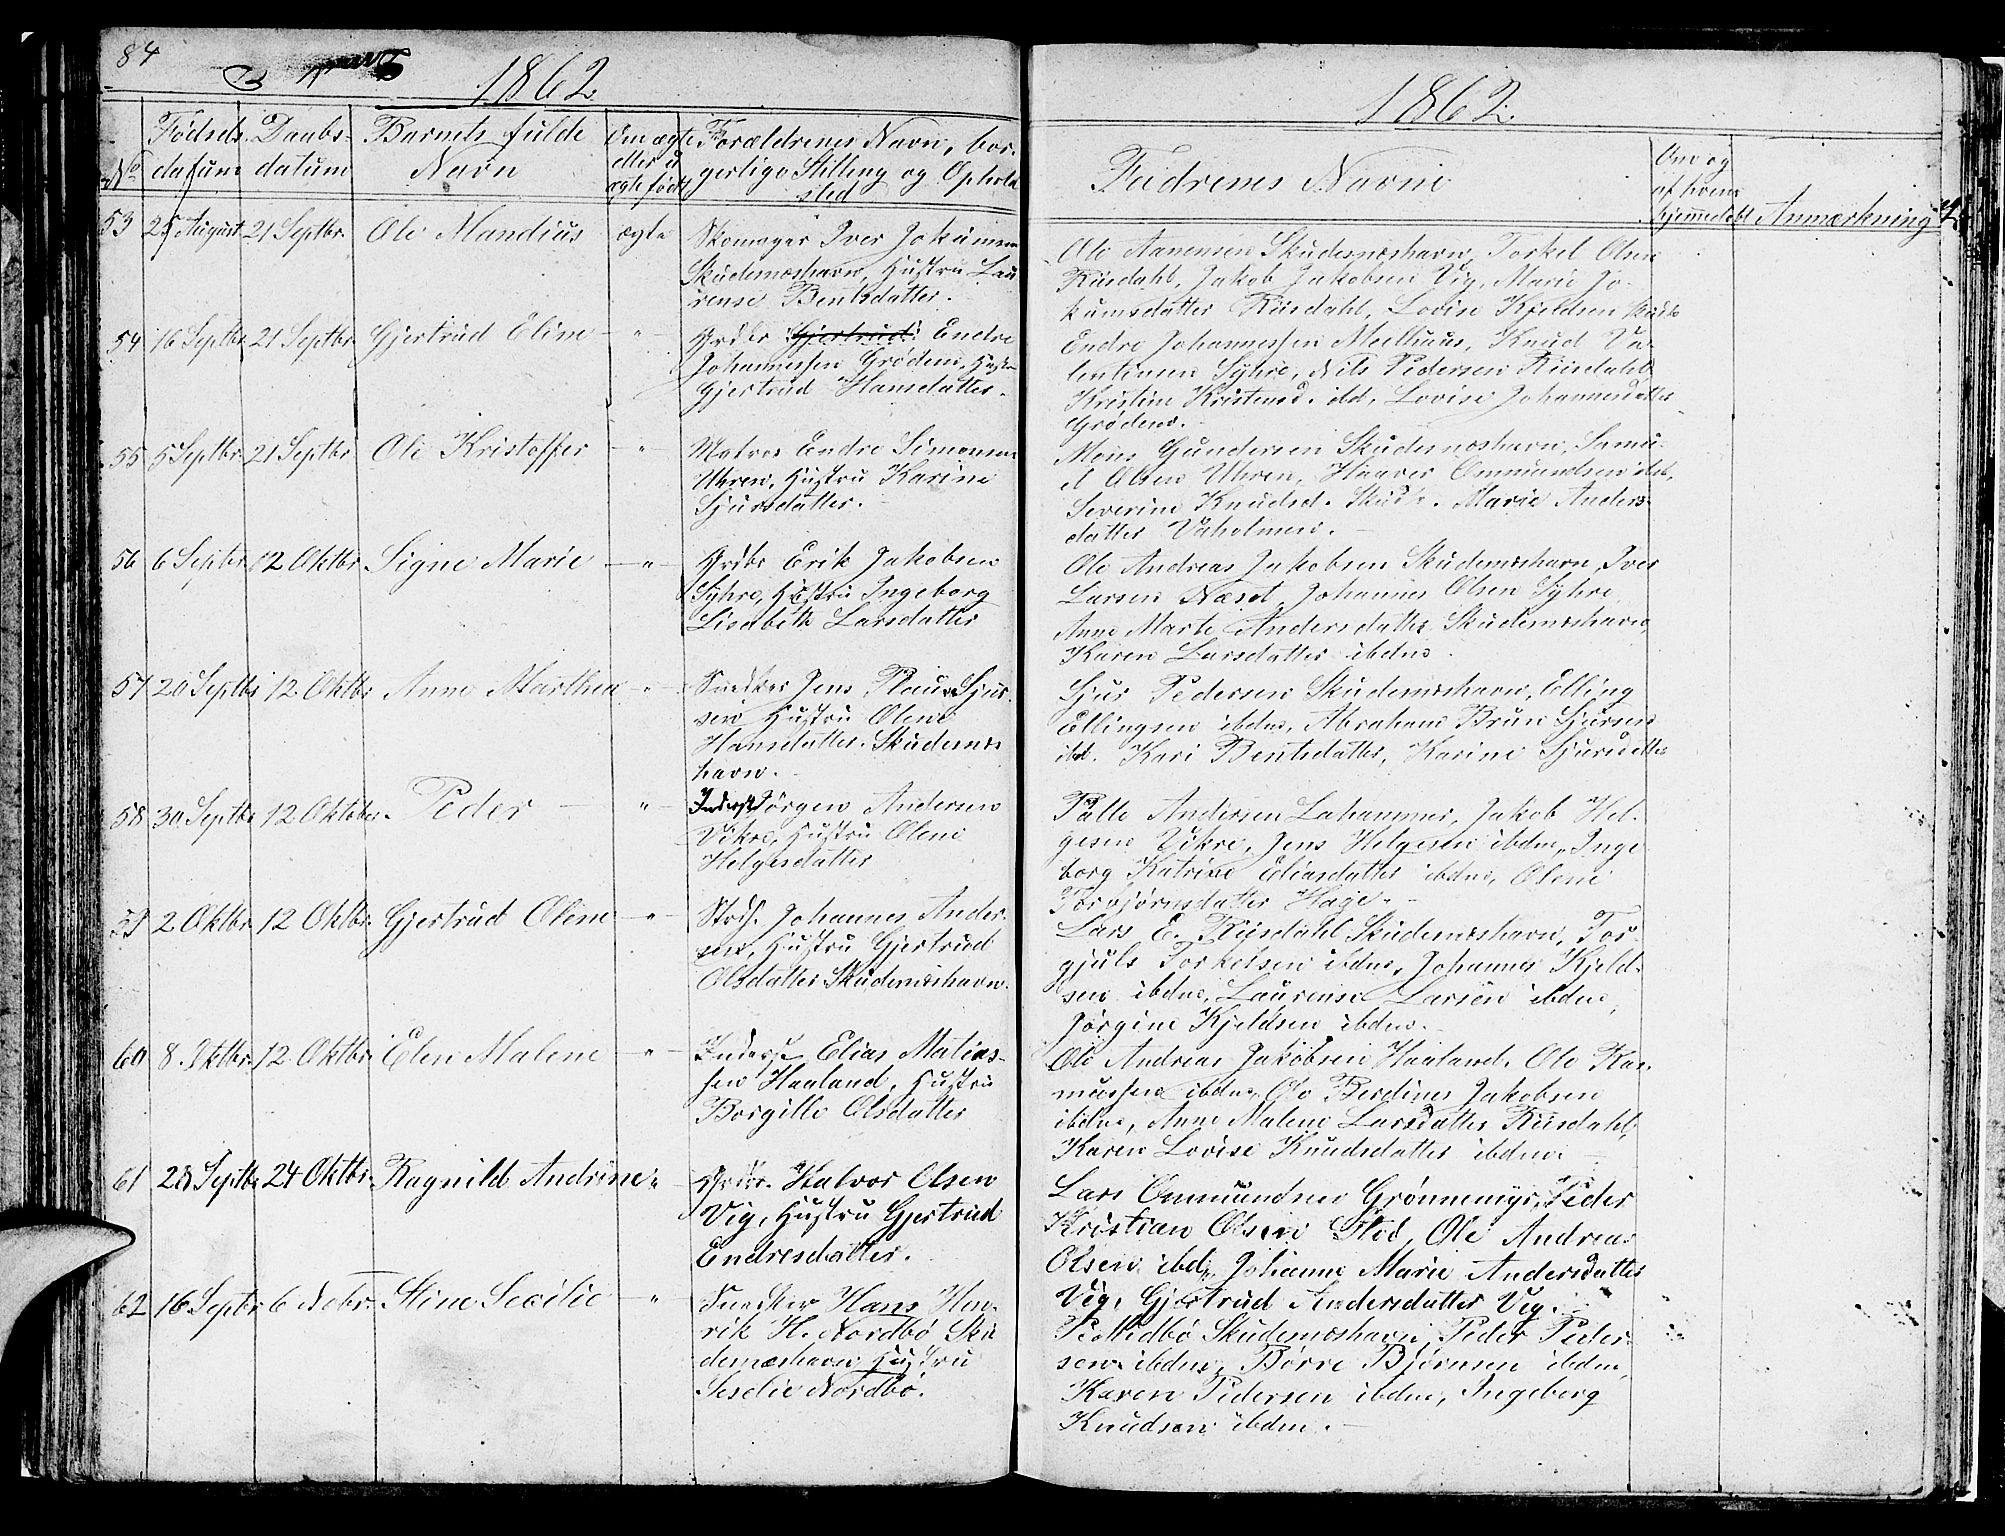 84
1862
Fødsels- Daabs- Barnets fulde Om ægte Forældrenes Navn, bor-
No datum datum Navn eller u gerligo Stilling og Ophold
ægte født sted
53 25 August 21 Septbr. Ole Mandius ægte Skomager Iver Jokumsen
Skudesnæshavn, Hustru Lau
rense Bentsdatter.
54 16 Septbr 21 Septbr. Gjertrud Eline - " - Grdbr Gjertrud Endre
Johannessen Grødem, Hustr
Gjertrud Hansdatter.
55 5 Septbr 21 Septbr Ole Kristoffer - " - Matros Endre Simonsen
Uhren, Hustru Karine
Sjursdatter.
56 6 Septbr 12 Oktbr Signe Marie - " - Grdbr Erik Jakobsen
Syhre, Hustru Ingeborg
Lisabeth Larsdatter
57 20 Septbr 12 Oktbr Anne Marthea - " - Snedker Jens Plaus Sjur-
sen Hustru Olene
Hansdatter. Skudesnæs
havn.
58 30 Septbr 12 Oktober. Peder - " - Inderst Jörgen Andersen
Vikre, Hustru Olene
Helgesdatter
59 2 Oktbr. 12 Oktbr. Gjertrud Olene - " - Strds. Johannes Ander-
sen, Hustru Gjertrud
Olsdatter Skudesnæshavn.
60 8. Oktbr. 12 Oktbr. Elen Malene - " - Inderst Elias Matias-
sen Haaland, Hustru
Borgille Olsdatter
61 28 Septbr 24 Oktbr. Ragnild Andrine " - Grdbr. Halvor Olsen
Vig, Hustru Gjertrud
Endresdatter.
62 16 Septbr 6 Nobr. Stine Secilie - " Snedker Hans Hen-
rik H. Nordbö Sku
desnæshavn Hustru
Seselie Nordbö.
1862.
Fadrenes Navne Om og
af hvem
hjemmedøbt Anmærkning
Ole Aanensen Skudesnæshavn, Torkel Olsen
Riisdahl, Jakob Jakobsen Vig, Marie Jo-
kumsdatter Riisdahl, Lovise Kjeldsen Skuds
Endre Johannessen Meelhuus, Knud Va-
lentinsen Syhre, Nils Pedersen Riisdahl
Kristine Kristensd. ibd, Lovise Johannesdatter
Grødem.
Mons Gundersen Skudesnæshavn, Samu-
el Olsen Uhren, Haaver Ommundsen ibd.
Severine Knudsd. Skuds. Marie Anders-
datter Vaholmen.
Ole Andreas Jakobsen Skudesnæshavn, Iver
Larsen Næset, Johannes Olsen Syhre
Anne Marte Andersdatter Skudesnæshavn,
Karen Larsdatter ibdm.
Sjur Pedersen Skudesnæshavn, Elling
Ellingsen ibdm, Abraham Brun Sjursen
ibd. Kari Bentsdatter, Karine Sjursdatter
Palle Andersen Lahammer, Jakob Hel-
gesen Vikre, Jens Helgesen ibdm, Inge
borg Katrine Eliasdatter ibdm, Olene
Torbjörnsdatter Hage.
Lars E. Riisdahl Skudesnæshavn, Tor-
gjuls Torkelsen ibdm, Johannes Kjeld-
sen ibdm, Laurense Larsen ibdm,
Jörgine Kjeldsen ibdm.
Ole Andreas Jakobsen Haaland, Ole Ras-
mussen ibdm, Ole Berdines Jakobsen
ibdm, Anne Malene Larsdatter Riisdahl,
Karen Lovise Knudsdatter ibdm.
Lars Ommundsen Grønnemyr, Peder
Kristian Olsen Stod, Ole Andreas
Olsen ibdm, Johanne Marie Andersdatter
Vig, Gjertrud Andersdatter Vig.
P. Midbö Skudesnæshavn, Peder Peder-
sen ibdm, Børre Björnsen ibdm,
Karen Pedersen ibdm, Ingeborg
Knudsen ibdm.